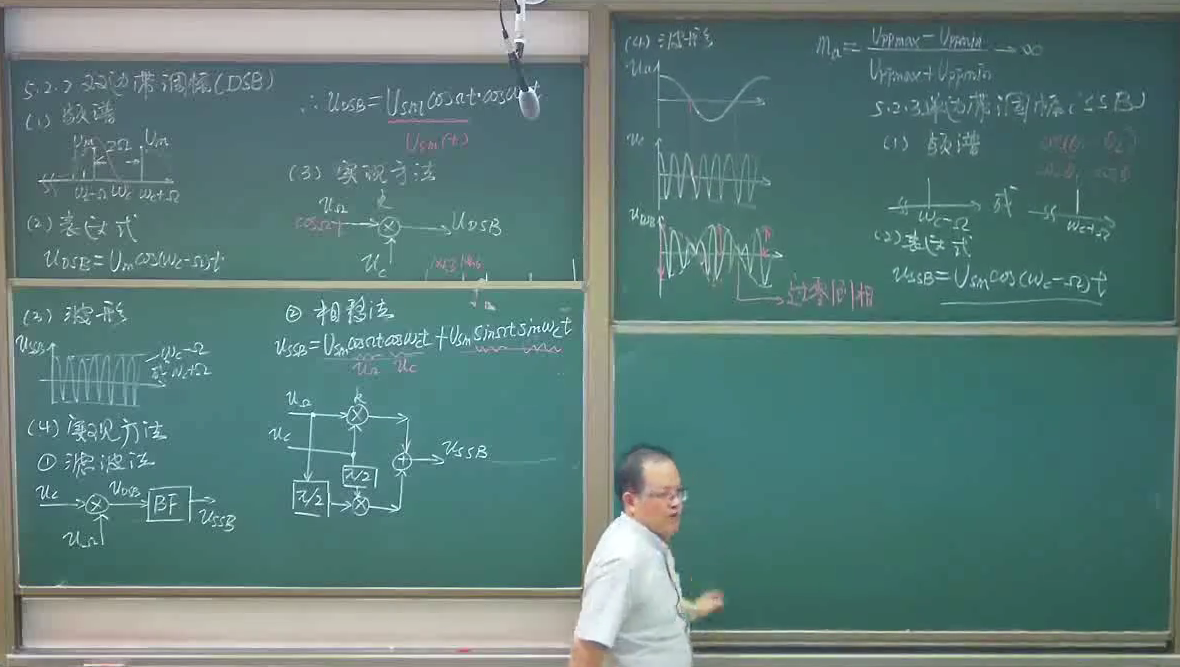 5.2.2 双边带调幅(DSB)
(1) 频谱
Um 2Ω Um
ωc-Ω ωc ωc+Ω
(2) 表达式
UDSB=Um cos(ωc-Ω)t
∴ UDSB=Usm cosΩt·cosωct
Usm(t)
(3) 实现方法
k
uΩ
cosΩt
UDSB
Uc
(3) 波形
USSB
ωc-Ω
或ωc+Ω
(4) 实现方法
① 滤波法
uc
uDSB
BF
uSSB
uΩ
② 相移法
uSSB=Usm cosΩt cosωct + Usm sinΩt sinωct
uΩ uc
k
uΩ
uc
π/2
π/2
uSSB
(4) 波形
uΩ
uc
uDSB
过零倒相
ma = (Uppmax - Uppmin) / (Uppmax + Uppmin) → ∞
5.2.3 单边带调幅(SSB)
(1) 频谱
ωc-Ω 或 ωc+Ω
(2) 表达式
uSSB=Usm cos(ωc-Ω)t